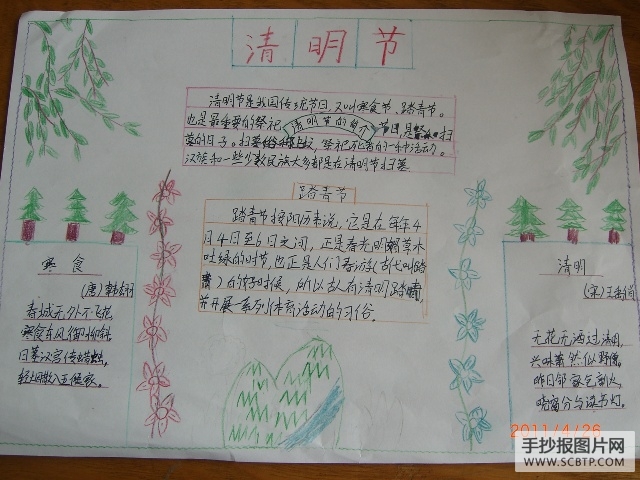 清明节
清明节是我国传统节日,又叫寒食节、踏青节。
也是最重要的祭祀
清明节的简介
节日,是
扫
墓的日子。扫墓俗
坟,祭祀死者的一种活动。
汉族和一些少数民族大多都是在清明节扫墓。
踏青节
踏青节按阳历来说,它是在每年4
月4日至6日之间,正是春光明
草木
吐绿的时节,也正是人们春游(古代叫踏
青)的好时候,所以古人有清明踏
青,
并开展一系列体育活动的习俗。
寒食
(唐)韩翃
春城无处不飞花
寒食东风御柳斜
日暮汉宫传蜡烛,
轻烟散入五侯家。
清明
(宋)王禹偁
无花无酒过清明,
兴味萧然似野僧。
昨日邻家乞新火,
晓窗分与读书灯。
2011/4/26
手抄报图片网
WWW.SCBTP.COM